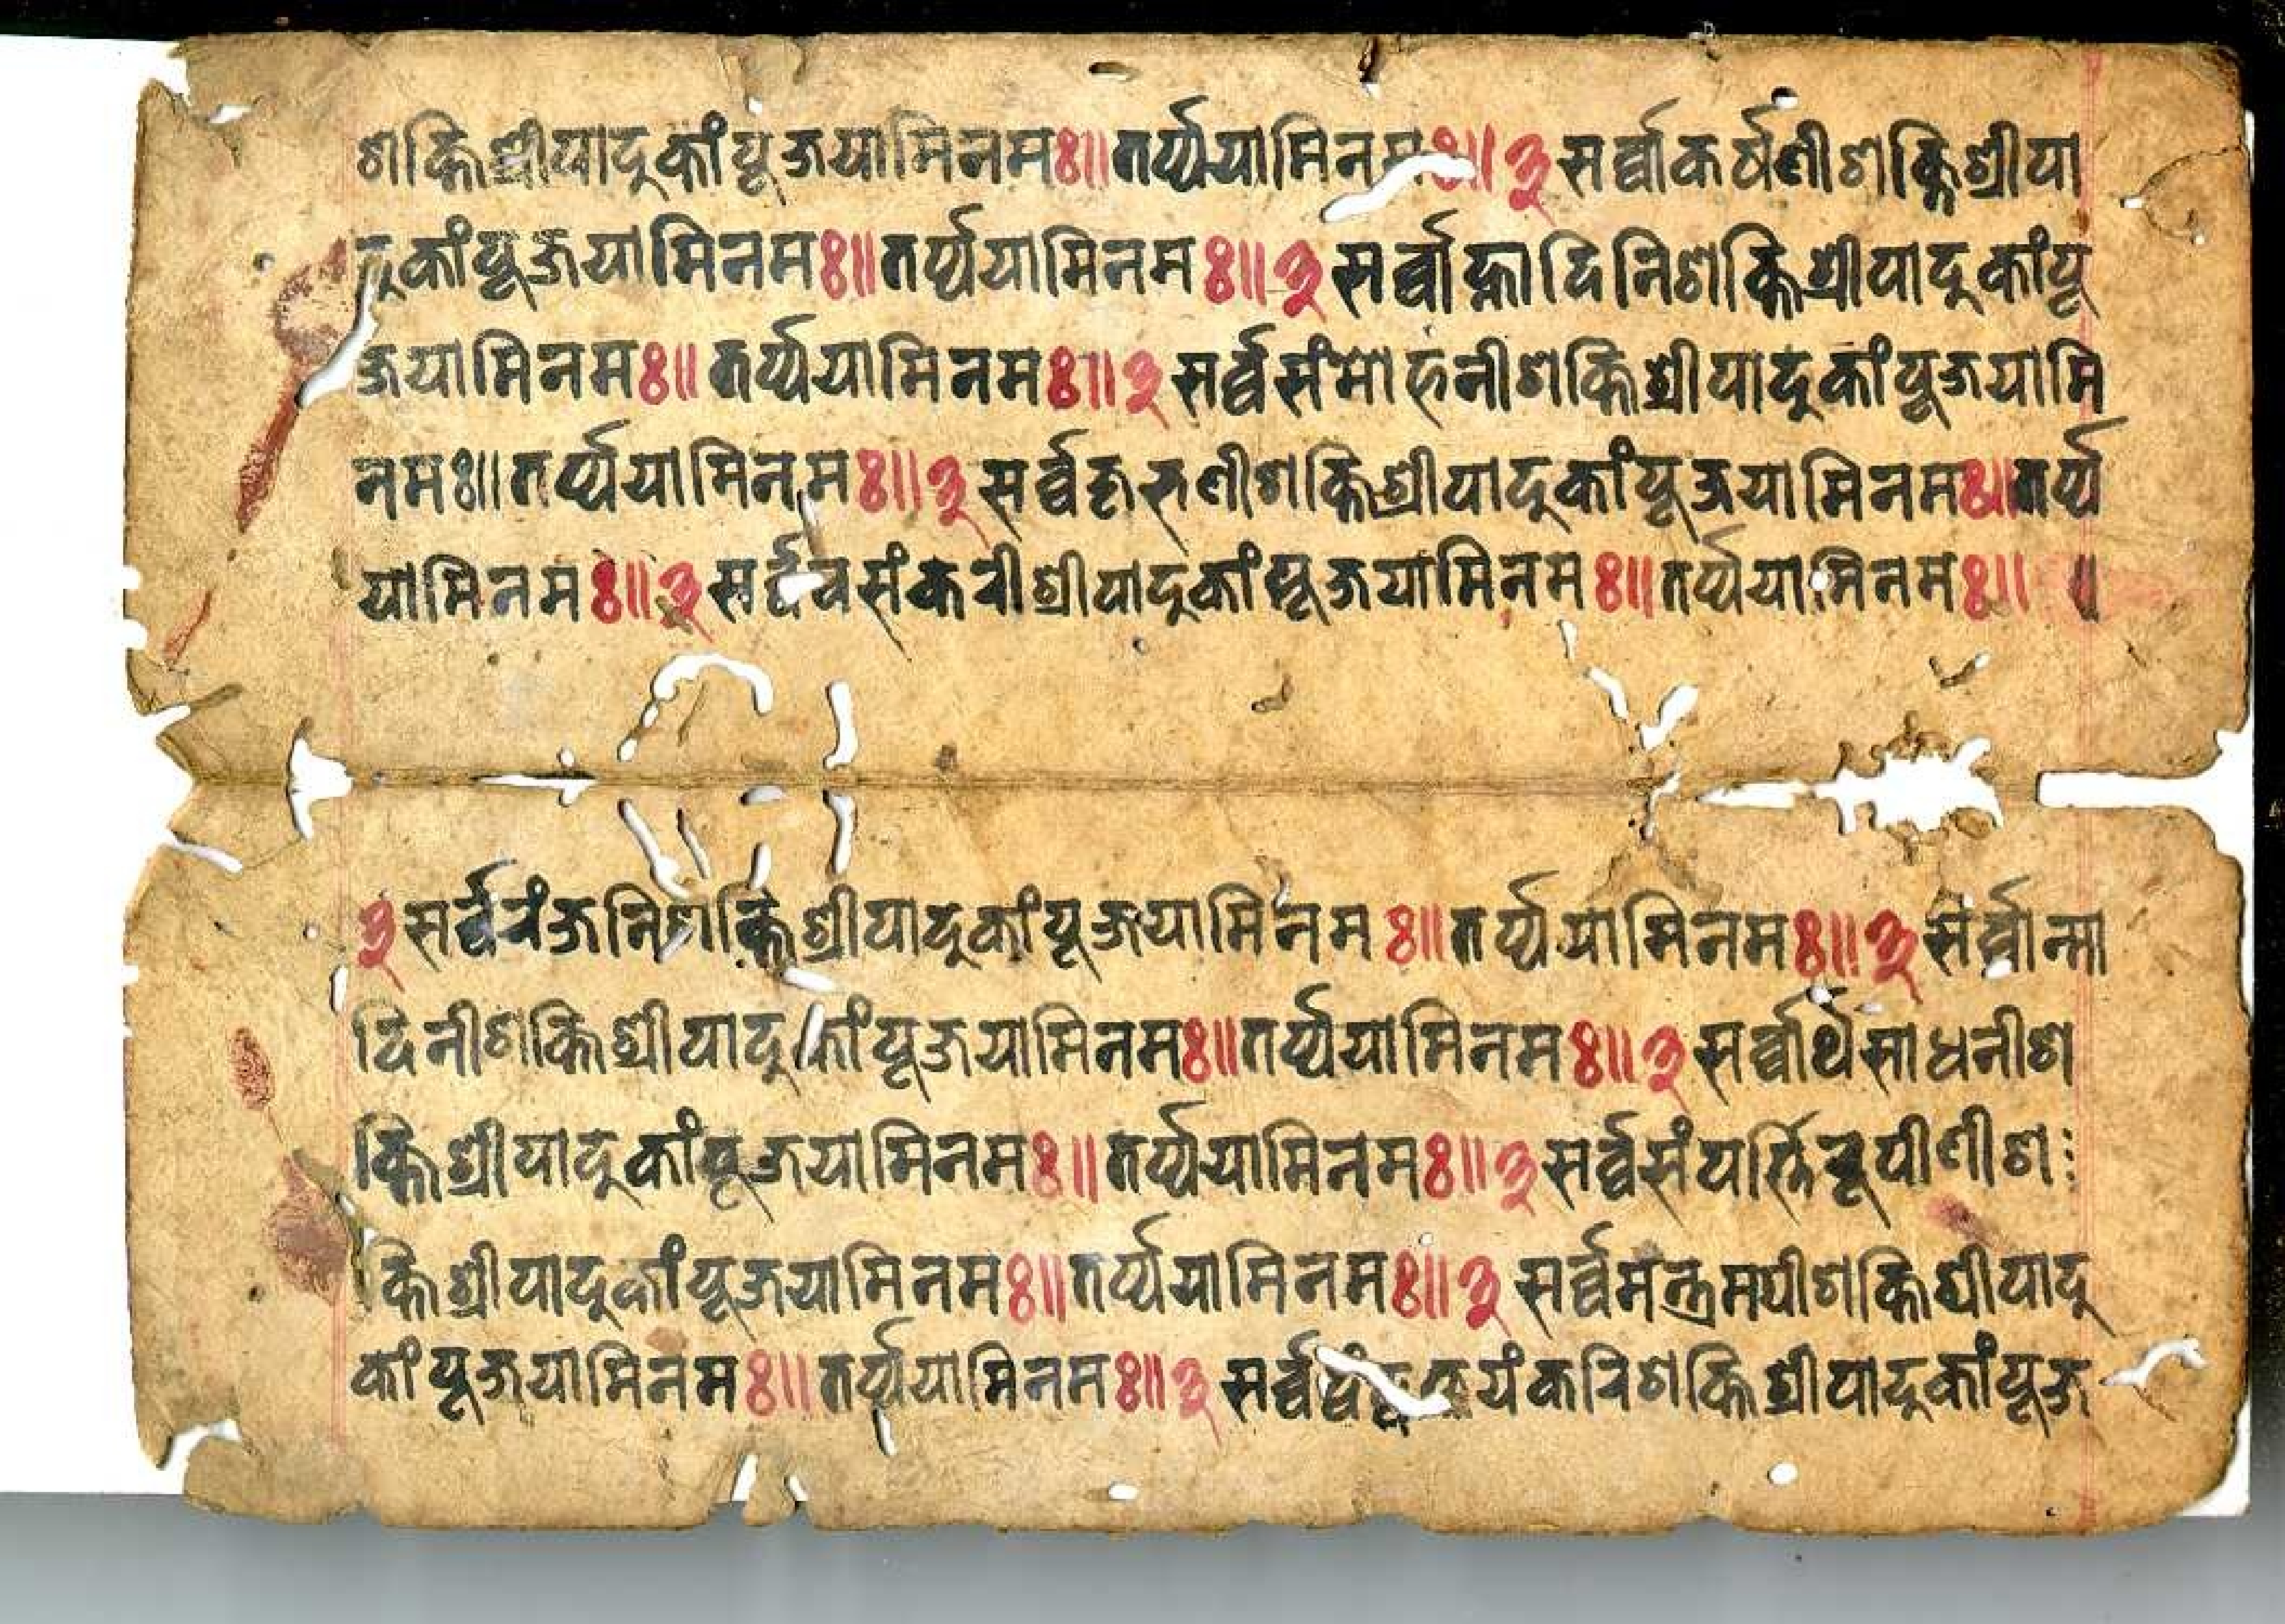 शक्तिश्रीपादुकांपूजयामिनमः॥तर्प्पयामिनमः॥३सर्व्वाकर्षणीशक्तिश्रीपा
दुकांपूजयामिनमः॥तर्प्पयामिनमः॥३सर्व्वाह्लादिनिशक्तिश्रीपादुकांपू
जयामिनमः॥तर्प्पयामिनमः॥३सर्व्वसंमोहनीशक्तिश्रीपादुकांपूजयामि
नमः॥तर्प्पयामिनमः॥३सर्व्वजृरुणीशक्तिश्रीपादुकांपूजयामिनमः॥तर्प्प
यामिनमः॥३सर्व्ववसंकरीश्रीपादुकांपूजयामिनमः॥तर्प्पयामिनमः॥॥
३सर्व्वरंजनिशक्तिश्रीपादुकांपूजयामिनमः॥तर्प्पयामिनमः॥३सर्व्वान्मा
दिनीशक्तिश्रीपादुकांपूजयामिनमः॥तर्प्पयामिनमः॥३सर्व्वार्थसाधनीश
क्तिश्रीपादुकांपूजयामिनमः॥तर्प्पयामिनमः॥३सर्व्वसंपर्त्तिरूपीणीश
क्तिश्रीपादुकांपूजयामिनमः॥तर्प्पयामिनमः॥३सर्व्वमन्त्रमयीशक्तिश्रीपादु
कांपूजयामिनमः॥तर्प्पयामिनमः॥३सर्व्वद्वंद्वक्षयंकरिशक्तिश्रीपादुकांपूज